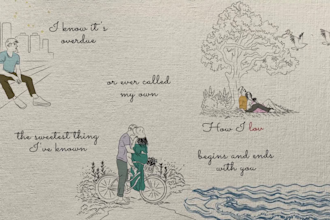 I know it's
overdue
or ever called
my own
the sweetest thing
I've known
How I lov
begins and ends
with you